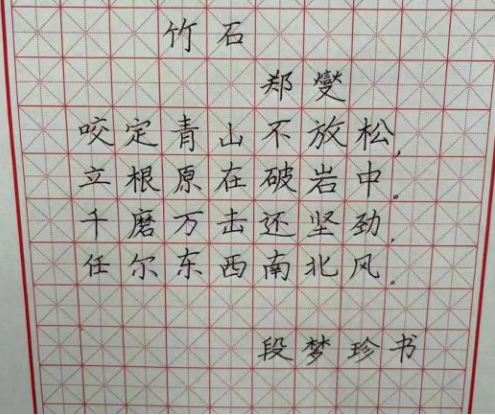 竹石
郑燮
咬定青山不放松,
立根原在破岩中。
千磨万击还坚劲,
任尔东西南北风。
段梦珍书